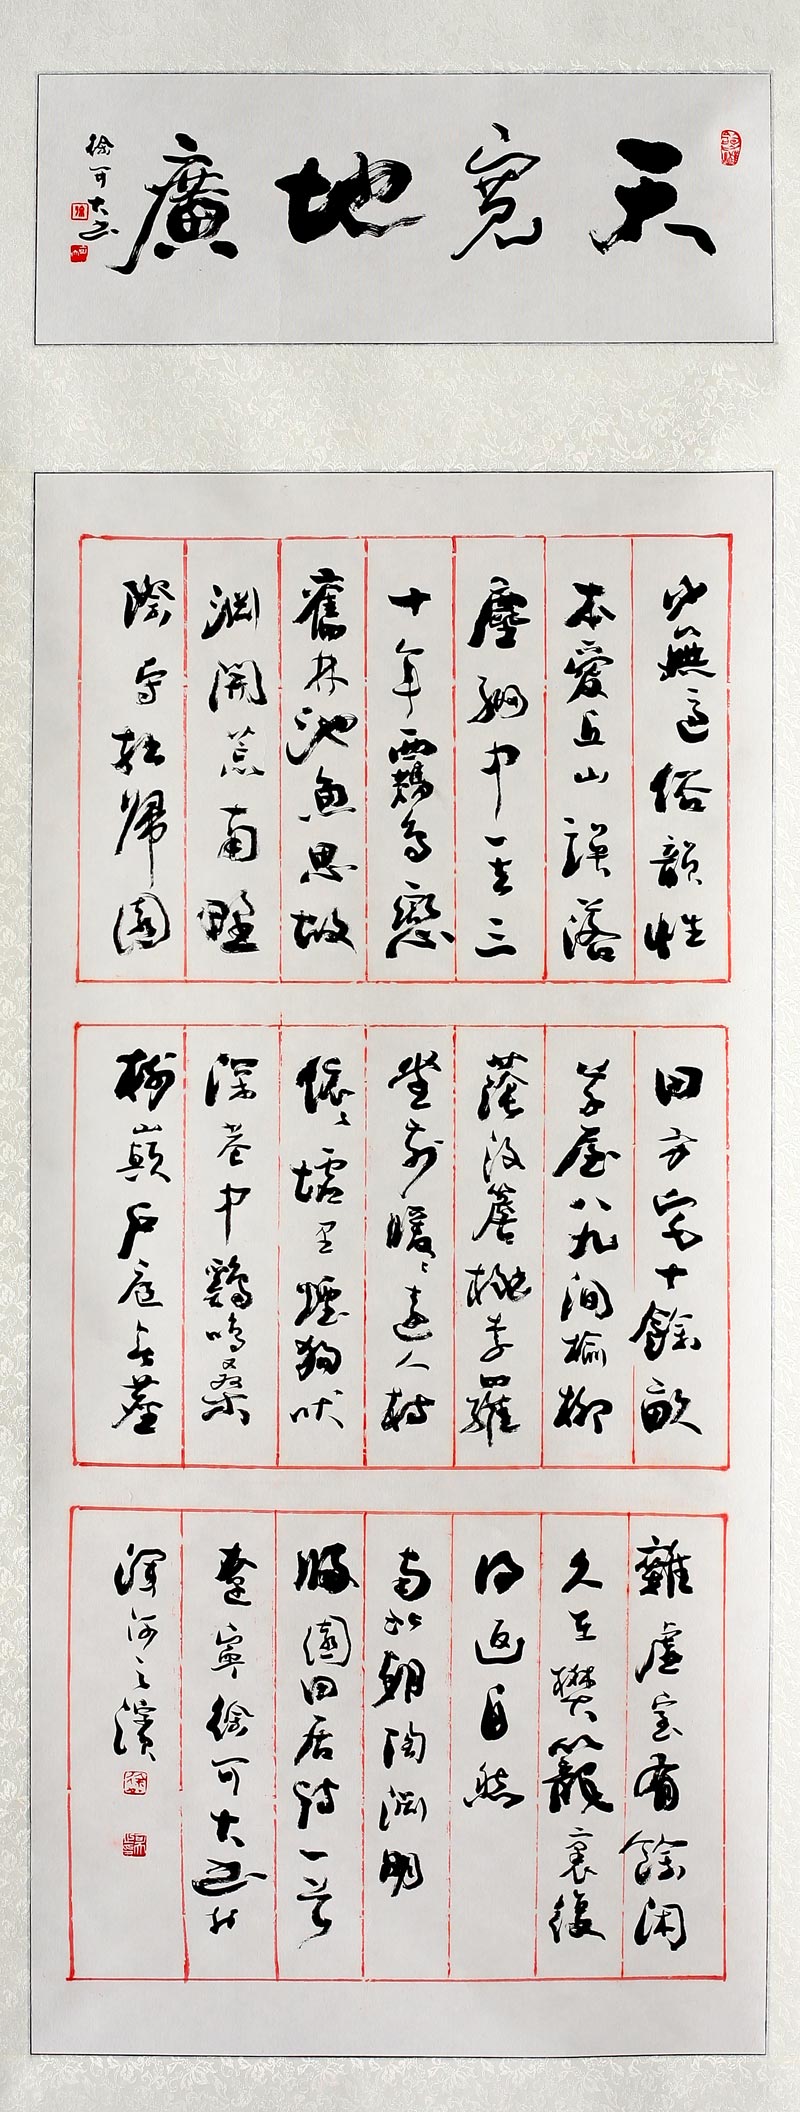 天寬地廣
徐可大書
少無適俗韻性
本愛丘山誤落
塵網中一去三
十年覊鳥戀
舊林池魚思故
淵開荒南野
際守拙歸園
田方宅十餘畝
草屋八九間榆柳
蔭後簷桃李羅
堂前暖〻遠人村
依〻墟里煙狗吠
深巷中鷄鳴桑
樹巔戶庭無塵
雜虛室有餘閑
久在樊籠裏復
得返自然
南北朝陶淵明
歸園田居詩一首
遼寧徐可大書於
渾河之濱